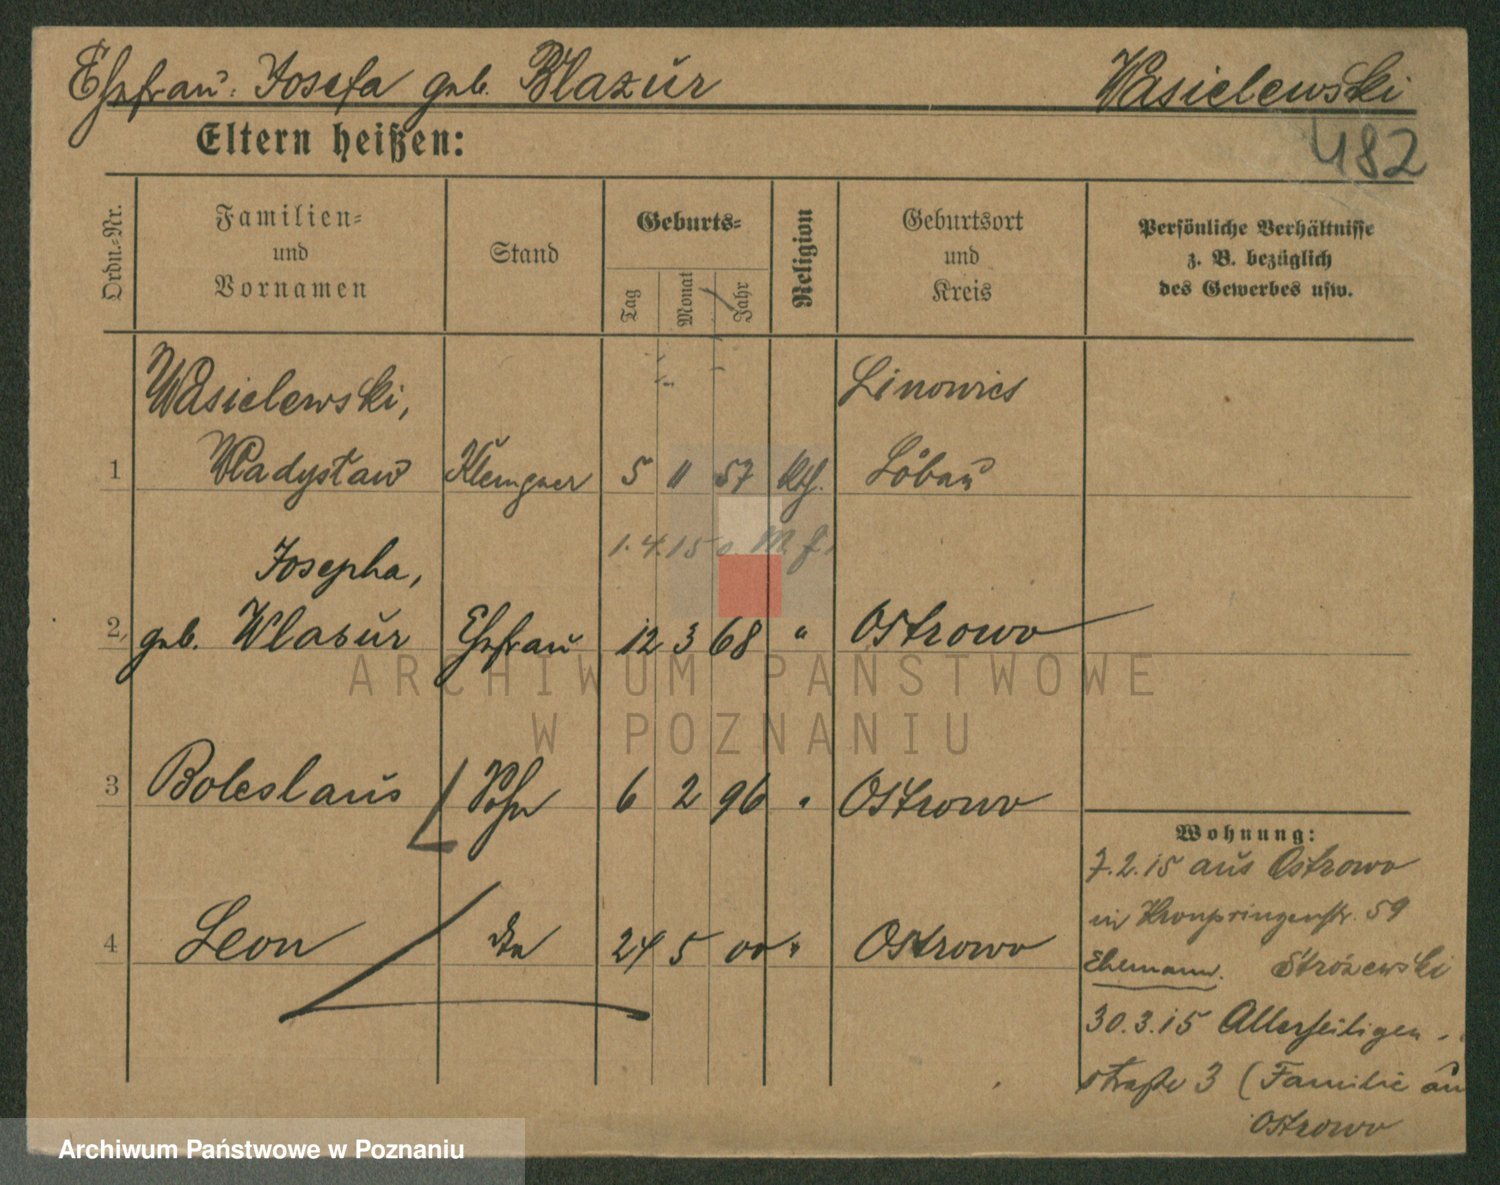 Ehefrau: Josefa geb. Blazur Wasielewski
Eltern heißen:
482
Ordn.-Nr.
Familien-
und
Vornamen
Stand
Geburts-
Tag
Monat
Jahr
Religion
Geburtsort
und
Kreis
Persönliche Verhältnisse
z. B. bezüglich
des Gewerbes usw.
Wasielewski, Linowies
1 Władysław Klempner 5 11 57 kth. Löbau
1.4.15
Josepha,
2, geb. Wlasur Ehefrau 12 3 68 " Ostrowo
ARCHIWUM PAŃSTWOWE
W POZNANIU
3 Boleslaus Sohn 6 2 96 " Ostrowo
Wohnung:
7.2.15 aus Ostrowo
in Kronprinzenstr. 59
4 Leon dto 24 5 00 " Ostrowo
Ehemann. Strózewski
30.3.15 Allerheiligen-
straße 3 (Familie aus
Ostrowo
Archiwum Państwowe w Poznaniu